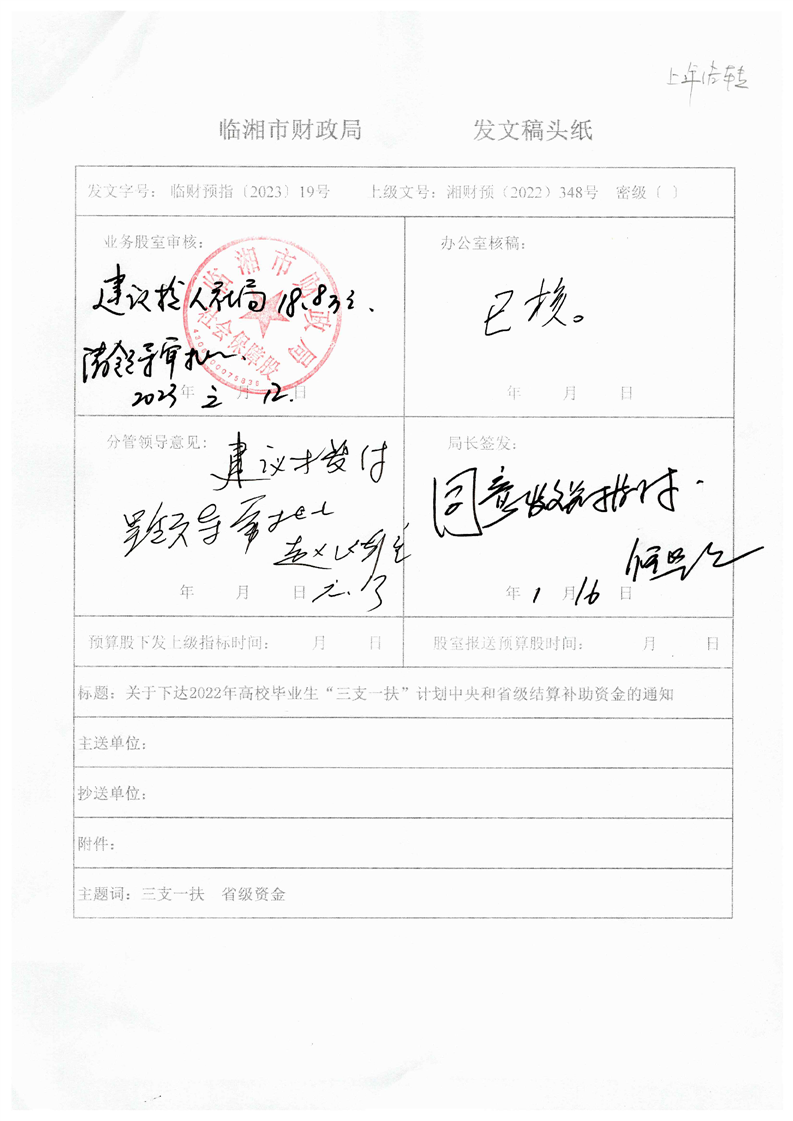 上年结转
临湘市财政局 发文稿头纸
发文字号： 临财预指〔2023〕19号 上级文号：湘财预（2022）348号 密级（ ）
业务股室审核：
建议拨人社局18.83元.
请领导审批.
2023年 月12日
临湘市财政局
社会保障股
办公室核稿：
已核。
年 月 日
分管领导意见：
建议拨付
呈领导审批
年 月 日
局长签发：
同意
年1月16日
预算股下发上级指标时间： 月 日 股室报送预算股时间： 月 日
标题：关于下达2022年高校毕业生“三支一扶”计划中央和省级结算补助资金的通知
主送单位：
抄送单位：
附件：
主题词：三支一扶 省级资金